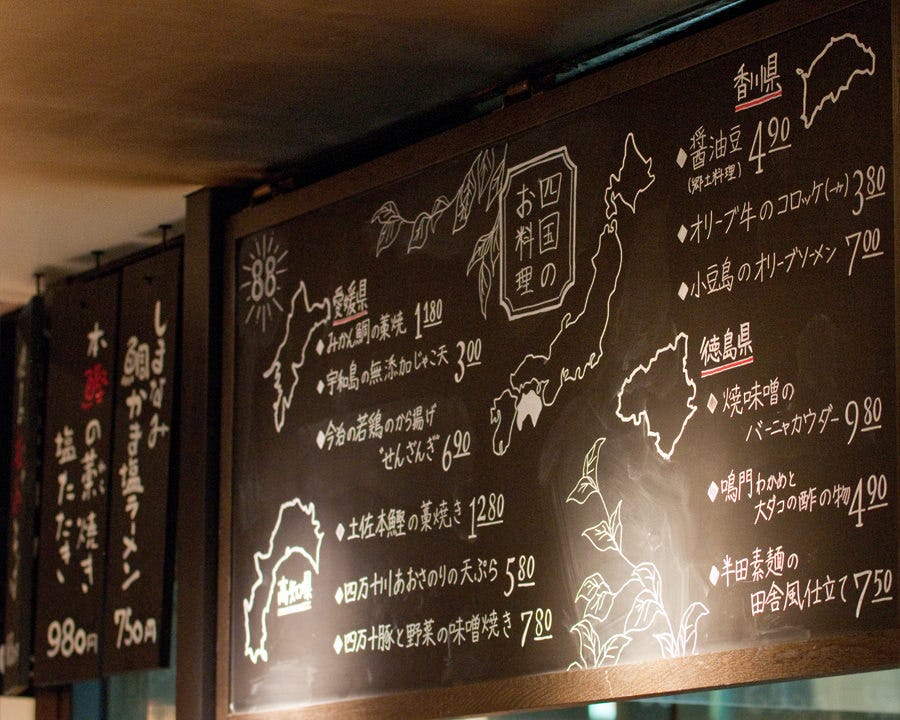 四国の
お料理
88
愛媛県
みかん鯛の藁焼 1180
宇和島の無添加じゃこ天 300
今治の若鶏のから揚げ
"せんざんぎ 690
高知県
土佐本鰹の藁焼き 1280
四万十川あおさのりの天ぷら 580
四万十豚と野菜の味噌焼き 780
香川県
醤油豆 490
(郷土料理)
オリーブ牛のコロッケ(一ヶ) 380
小豆島のオリーブソーメン 700
徳島県
焼味噌の
バーニャカウダー 980
鳴門わかめと
大ダコの酢の物 490
半田素麺の
田舎風仕立て 750
しまなみ
鯛かま塩ラーメン
750円
本鰹の藁焼き
塩たたき
980円